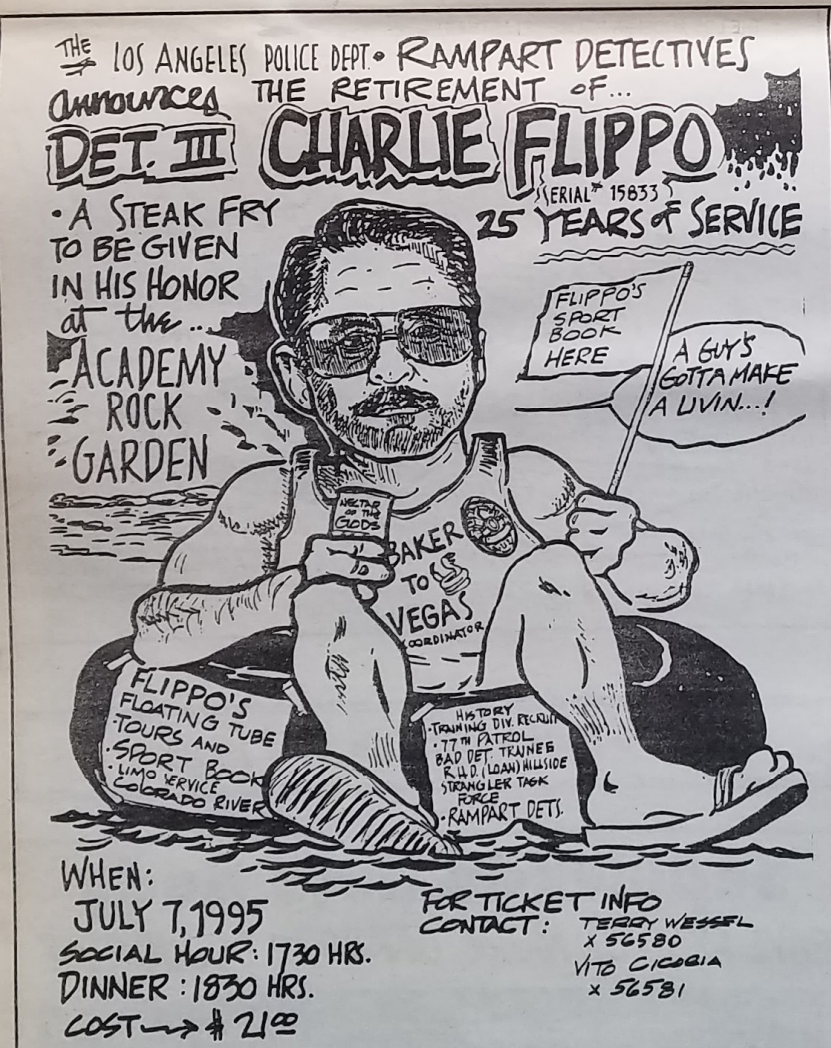 THE LOS ANGELES POLICE DEPT. • RAMPART DETECTIVES
announces THE RETIREMENT OF...
DET. III CHARLIE FLIPPO
SERIAL# 15833
25 YEARS of SERVICE
• A STEAK FRY
TO BE GIVEN
IN HIS HONOR
at the..
ACADEMY
ROCK
GARDEN
FLIPPO'S
SPORT
BOOK
HERE
A GUY'S
GOTTA MAKE
A LIVIN...!
NECTAR
OF THE
GODS
BAKER
TO
VEGAS
COORDINATOR
FLIPPO'S
FLOATING TUBE
TOURS AND
• SPORT BOOK
• LIMO SERVICE
COLORADO RIVER
HISTORY
• TRAINING DIV. RECRUIT
• 77TH PATROL
BAD DET. TRAINEE
R.H.D. (LOAN) HILLSIDE
STRANGLER TASK
FORCE
• RAMPART DETS.
WHEN:
JULY 7, 1995
SOCIAL HOUR: 1730 HRS.
DINNER : 1830 HRS.
COST → $ 21.00
FOR TICKET INFO
CONTACT: TERRY WESSEL
x 56580
VITO CICORIA
x 56581